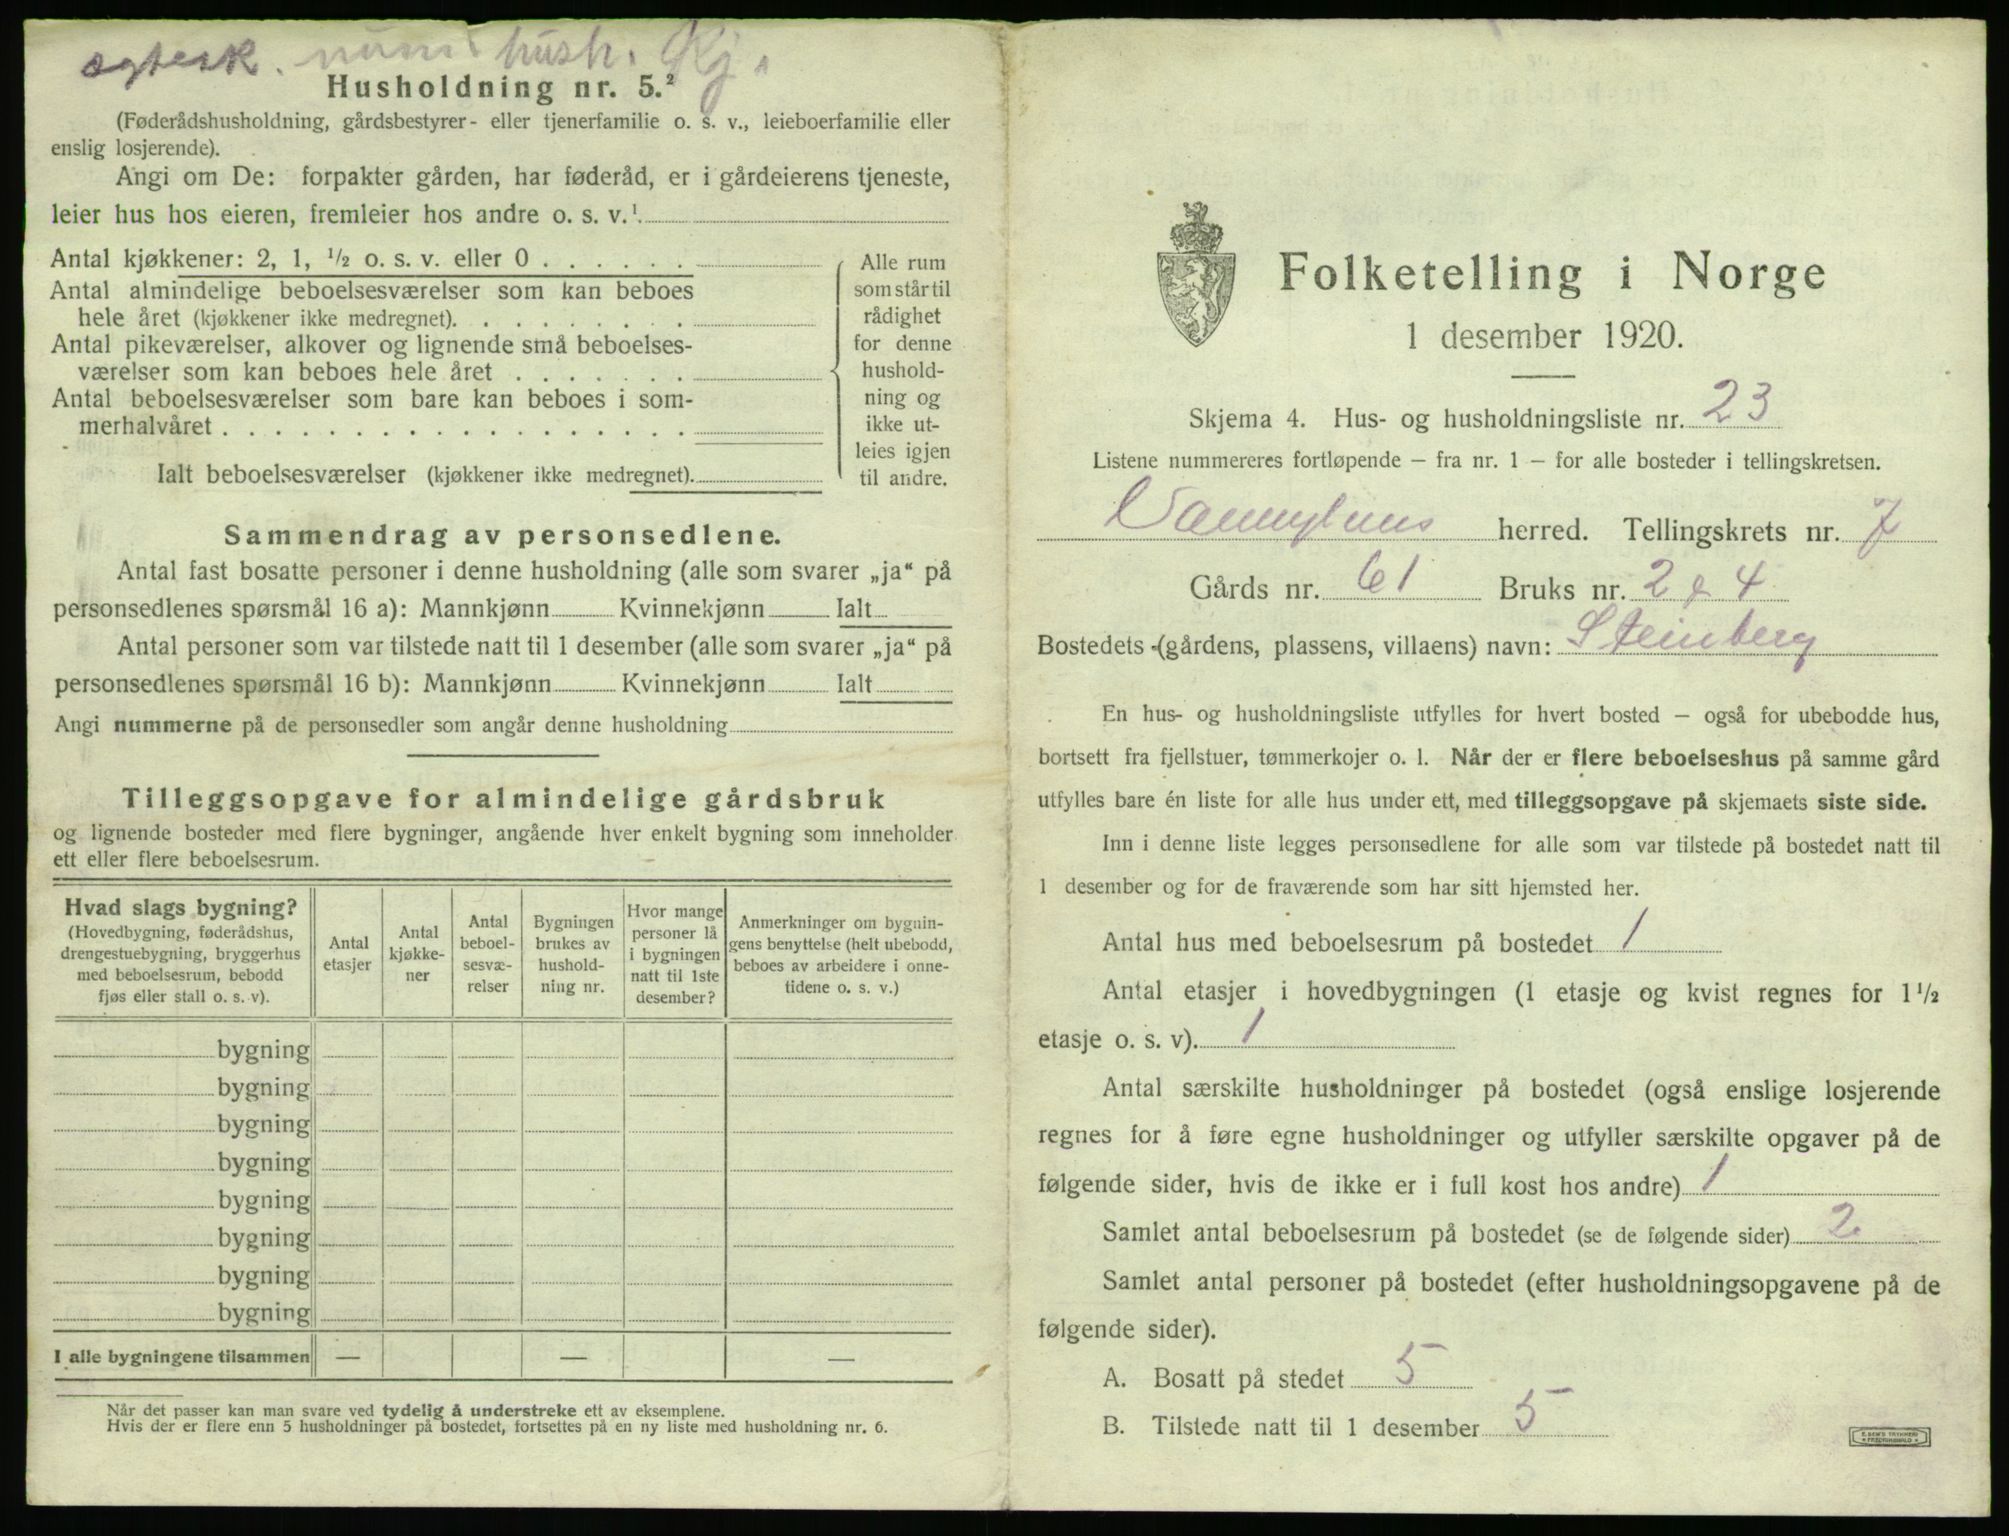 ægtesk. num. hush. Kj.
Husholdning nr. 5.²
(Føderådshusholdning, gårdsbestyrer- eller tjenerfamilie o. s. v., leieboerfamilie eller
enslig losjerende).
Angi om De: forpakter gården, har føderåd, er i gårdeierens tjeneste,
leier hus hos eieren, fremleier hos andre o. s. v.¹
Antal kjøkkener: 2, 1, ½ o. s. v. eller 0 . . . . . .
Antal almindelige beboelsesværelser som kan beboes
hele året (kjøkkener ikke medregnet). . . . . . . . .
Antal pikeværelser, alkover og lignende små beboelses-
værelser som kan beboes hele året . . . . . . .
Antal beboelsesværelser som bare kan beboes i som-
merhalvåret . . . . . . . . . . . . . . . . . .
Ialt beboelsesværelser (kjøkkener ikke medregnet).
Alle rum
som står til
rådighet
for denne
hushold-
ning og
ikke ut-
leies igjen
til andre.
Sammendrag av personsedlene.
Antal fast bosatte personer i denne husholdning (alle som svarer „ja“ på
personsedlenes spørsmål 16 a): Mannkjønn Kvinnekjønn Ialt
Antal personer som var tilstede natt til 1 desember (alle som svarer „ja“ på
personsedlenes spørsmål 16 b): Mannkjønn Kvinnekjønn Ialt
Angi nummerne på de personsedler som angår denne husholdning
Tilleggsopgave for almindelige gårdsbruk
og lignende bosteder med flere bygninger, angående hver enkelt bygning som inneholder
ett eller flere beboelsesrum.
Hvad slags bygning?
(Hovedbygning, føderådshus,
drengestuebygning, bryggerhus
med beboelsesrum, bebodd
fjøs eller stall o. s. v).
Antal
etasjer
Antal
kjøkke-
ner
Antal
beboel-
sesvæ-
relser
Bygningen
brukes av
hushold-
ning nr.
Hvor mange
personer lå
i bygningen
natt til 1ste
desember?
Anmerkninger om bygnin-
gens benyttelse (helt ubebodd,
beboes av arbeidere i onne-
tidene o. s. v.)
bygning
bygning
bygning
bygning
bygning
bygning
bygning
bygning
I alle bygningene tilsammen — — —
Når det passer kan man svare ved tydelig å understreke ett av eksemplene.
Hvis der er flere enn 5 husholdninger på bostedet, fortsettes på en ny liste med husholdning nr. 6.
Folketelling i Norge
1 desember 1920.
Skjema 4. Hus- og husholdningsliste nr. 23
Listene nummereres fortløpende — fra nr. 1 — for alle bosteder i tellingskretsen.
Vannylvens herred. Tellingskrets nr. 7
Gårds nr. 61 Bruks nr. 2 & 4
Bostedets (gårdens, plassens, villaens) navn: Steinberg
En hus- og husholdningsliste utfylles for hvert bosted — også for ubebodde hus,
bortsett fra fjellstuer, tømmerkojer o. l. Når der er flere beboelseshus på samme gård
utfylles bare én liste for alle hus under ett, med tilleggsopgave på skjemaets siste side.
Inn i denne liste legges personsedlene for alle som var tilstede på bostedet natt til
1 desember og for de fraværende som har sitt hjemsted her.
Antal hus med beboelsesrum på bostedet 1
Antal etasjer i hovedbygningen (1 etasje og kvist regnes for 1½
etasje o. s. v). 1
Antal særskilte husholdninger på bostedet (også enslige losjerende
regnes for å føre egne husholdninger og utfyller særskilte opgaver på de
følgende sider, hvis de ikke er i full kost hos andre) 1
Samlet antal beboelsesrum på bostedet (se de følgende sider) 2
Samlet antal personer på bostedet (efter husholdningsopgavene på de
følgende sider).
A. Bosatt på stedet 5
B. Tilstede natt til 1 desember 5